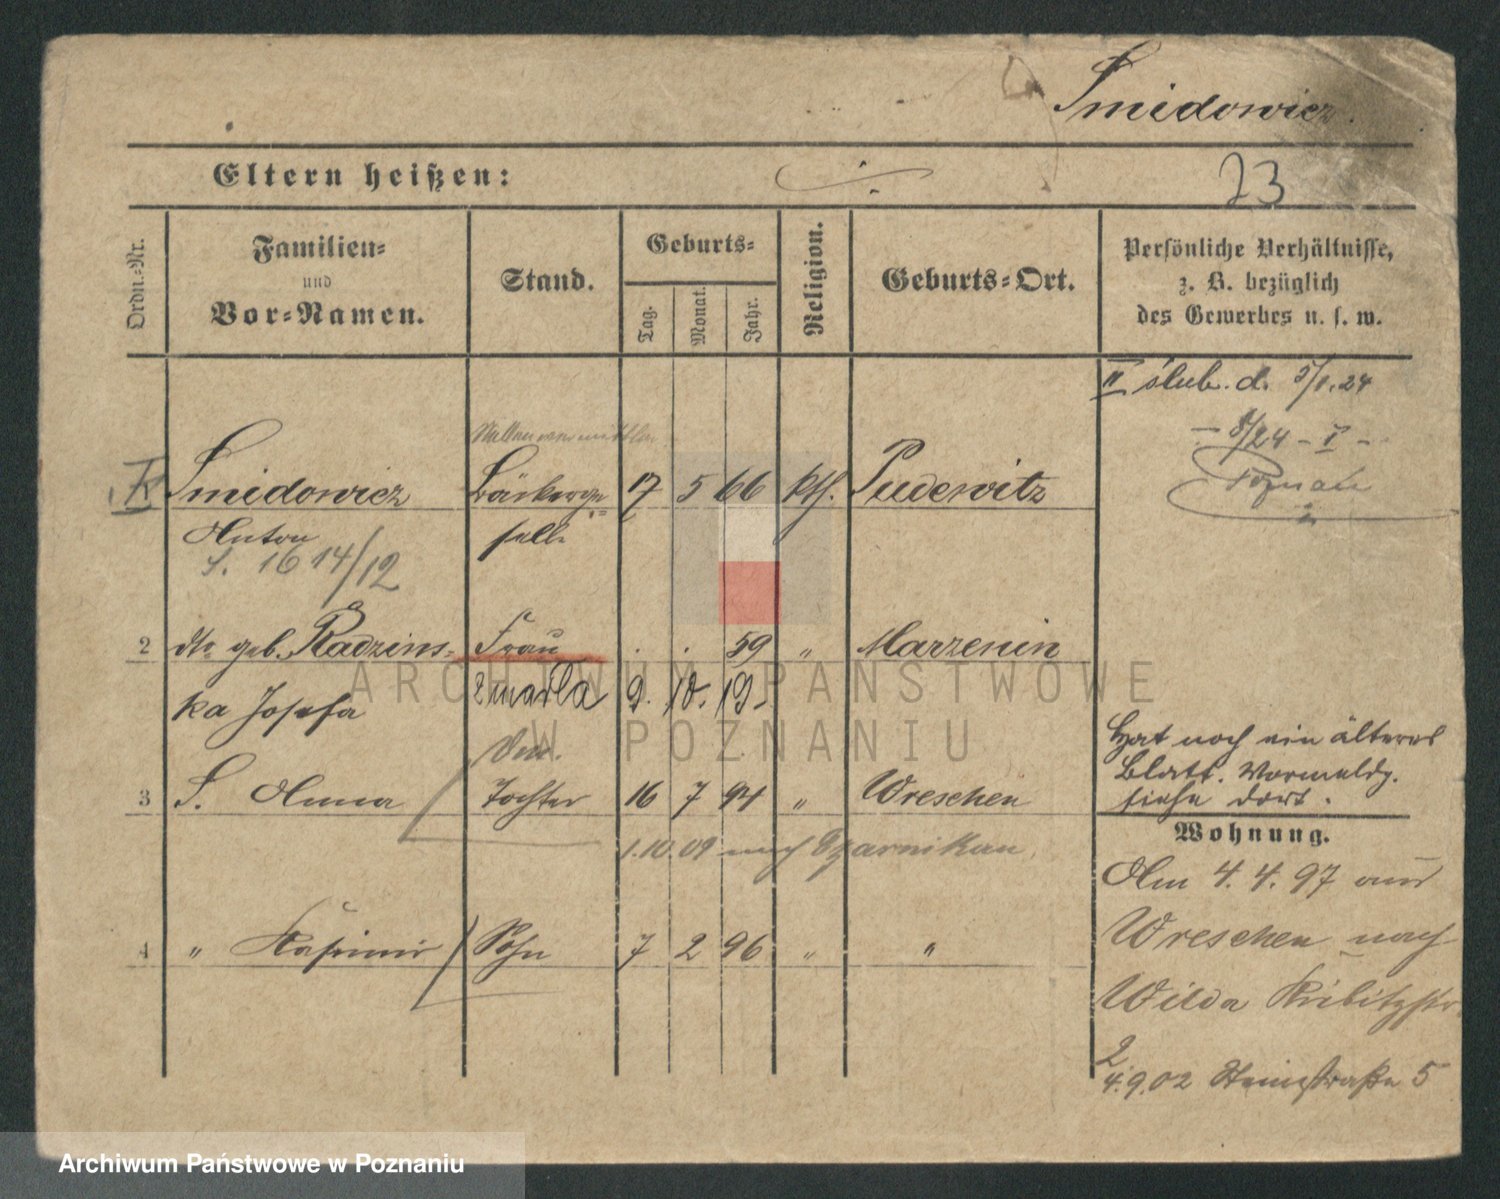 Śmidowicz.
Eltern heißen:
73
Ordn.-Nr.
Familien-
und
Vor-Namen.
Stand.
Geburts-
Tag.
Monat.
Jahr.
Religion.
Geburts-Ort.
Persönliche Verhältnisse,
z. B. bezüglich
des Gewerbes u. s. w.
II ślub. d. 5/8.24
8/24 - I -
Poznań
Śmidowicz Bäckerge= 17 5 66 kth. Pudewitz
Anton sell
S. 16 14/12
2 dto geb. Radzins= Frau . . 59 " Marzenin
ka Josefa zmarła 9. 10. 19.
Hat noch ein älteres
Blatt. Vormeldg.
siehe dort.
3 S. Anna Tochter 16 7 94 " Wreschen
1.10.09 nach Czarnikau
Wohnung.
Am 4.4.97 aus
4 " Kasimir Sohn 7 2 96 " "
Wreschen nach
Wilda
2
4.9.02 5
ARCHIWUM PAŃSTWOWE
W POZNANIU
Archiwum Państwowe w Poznaniu